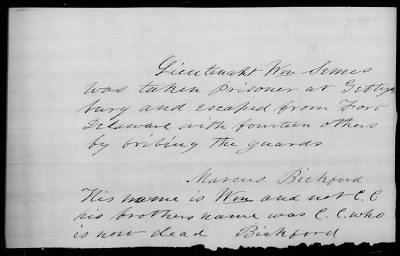 Lieutenant Wm Semes
was taken prisoner at Gettys
burg and escaped from Fort
Delaware with fourteen others
by bribing the guards
Marcus Bickford
His name is Wm and not C.C
his brothers name was C.C. who
is now dead Bickford